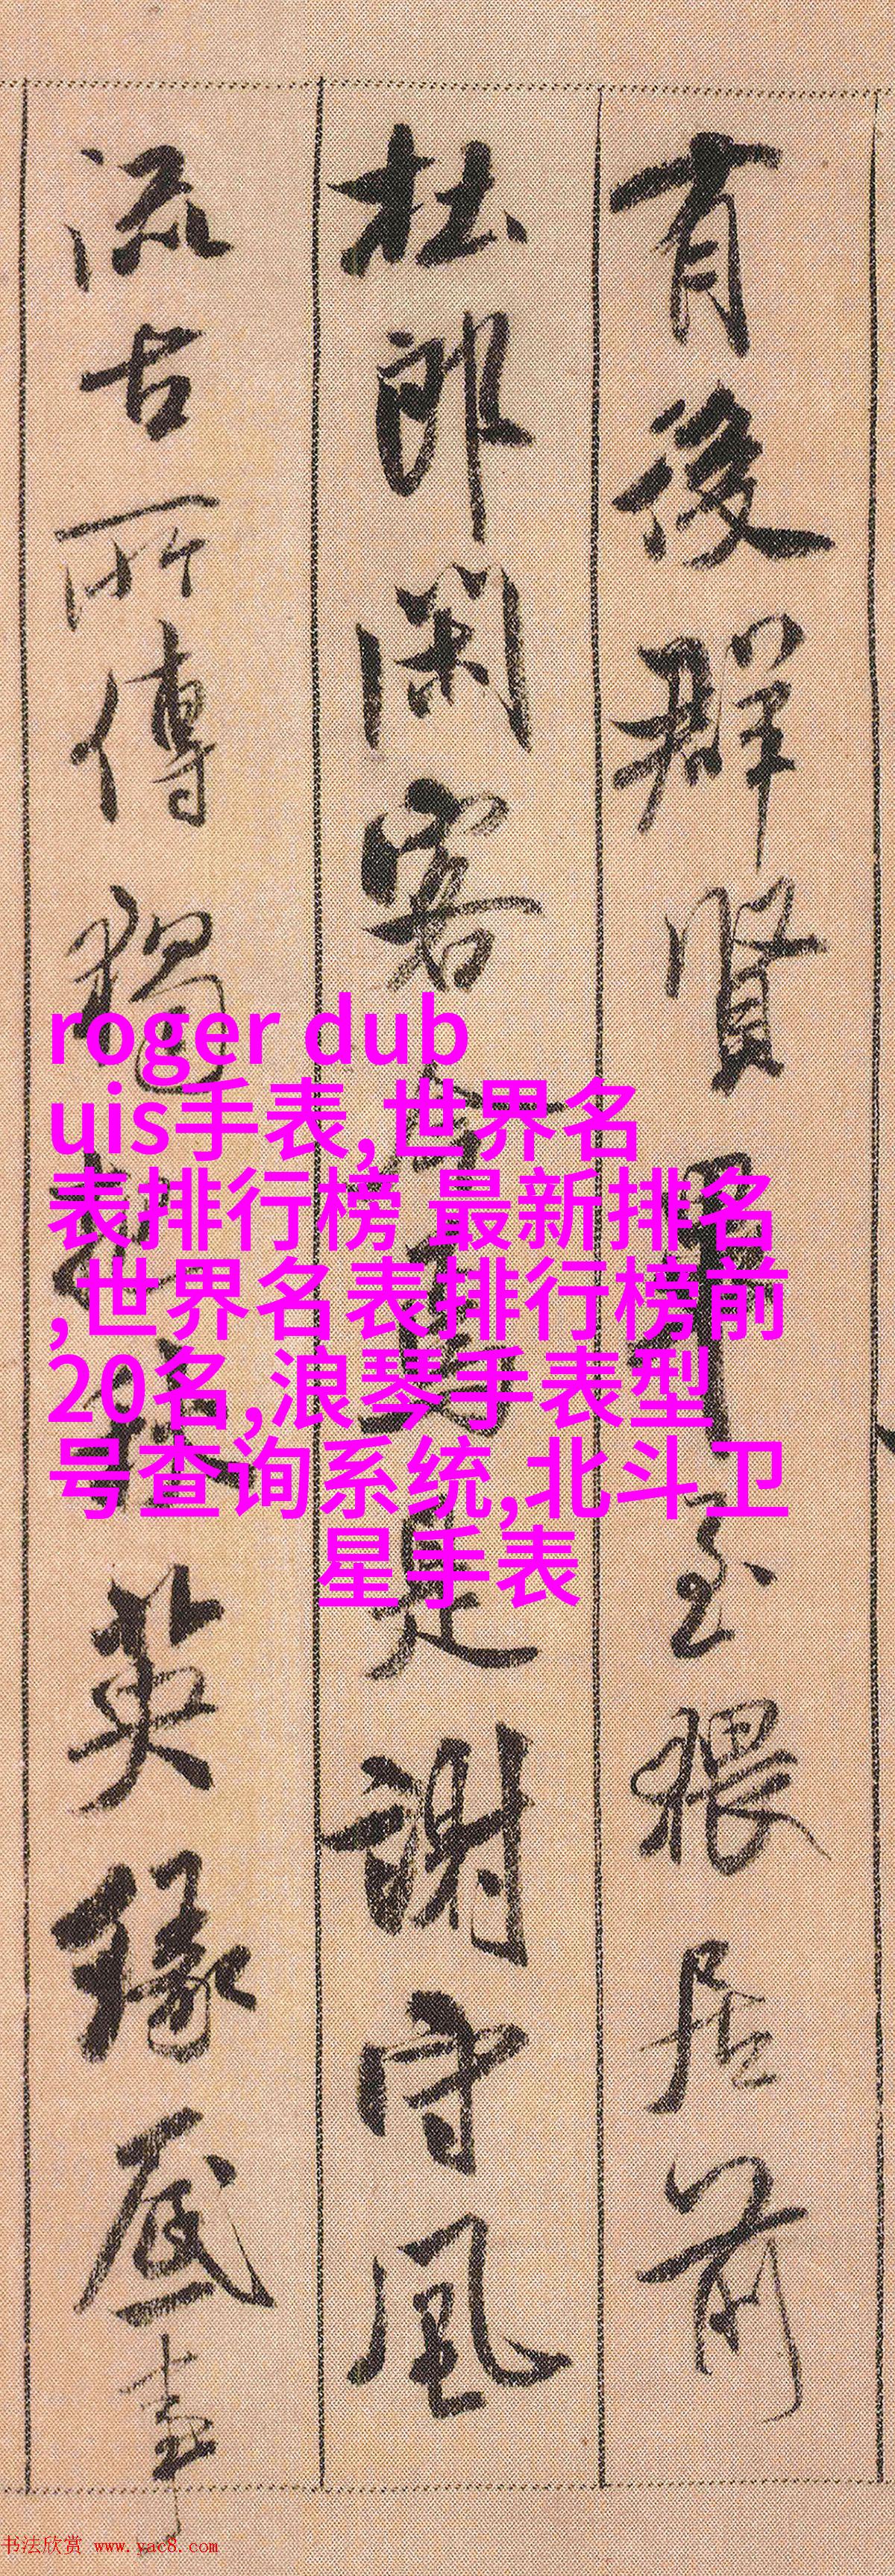 有後群賢畢至猥居前
杜郎閑客今焉是謝守風
流古所傳獨把秋英緣底事
roger dub
uis手表,世界名
表排行榜 最新排名
,世界名表排行榜前
20名,浪琴手表型
号查询系统,北斗卫
星手表
书法欣赏 www.yac8.com